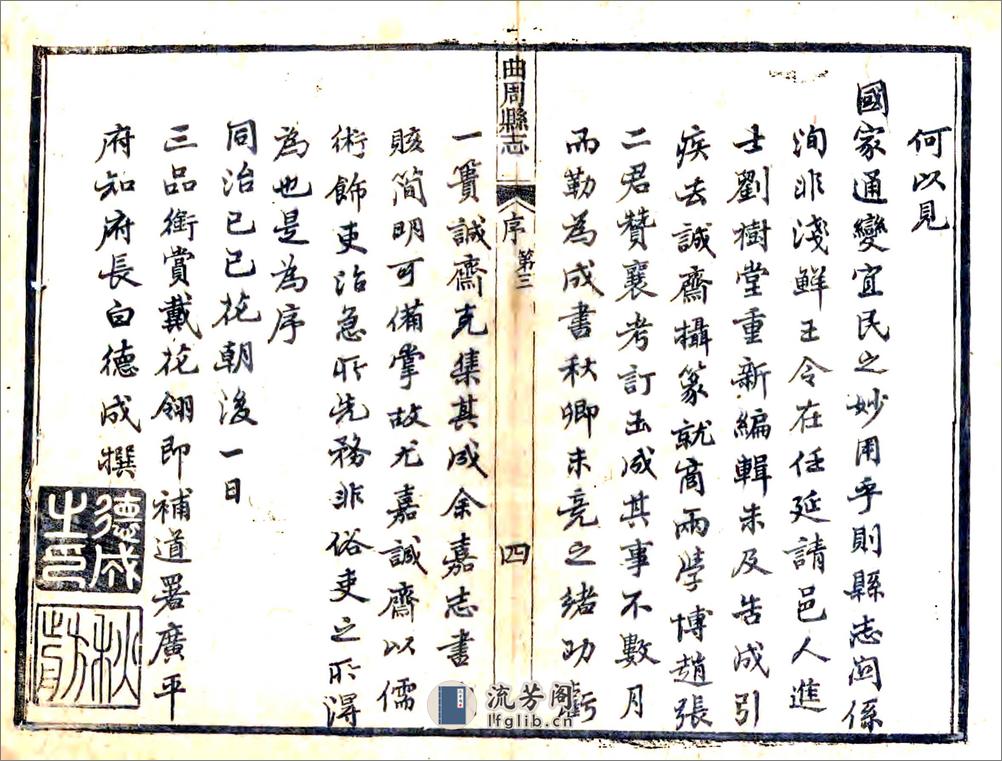 何以見
國家通變宜民之妙用乎則縣志関係
洵非淺鮮王令在任延請邑人進
士劉樹堂重新編輯未及告成引
疾去誠齋攝篆就商兩學博趙張
二君贊襄考訂玉成其事不數月
而勒為成書秋卿未竟之緒功虧
曲周縣志
序
第三
四
一簣誠齋克集其成余嘉志書
賅簡明可備掌故尤嘉誠齋以儒
術飾吏治急所先務非俗吏之所得
為也是為序
同治己巳花朝後一日
三品銜賞戴花翎即補道署廣平
府知府長白德成撰
德成之印
流芳阁
lfglib.cn